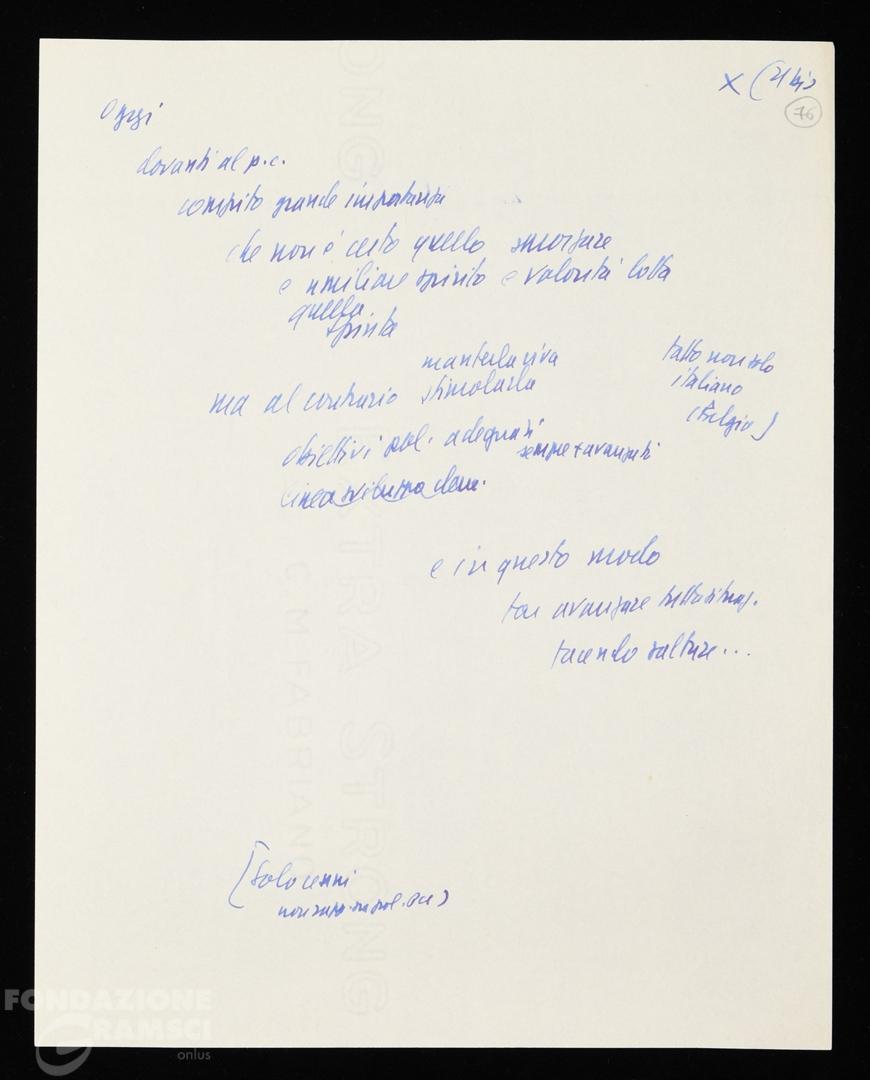 X (21 bis
76
Oggi
davanti al p.c.
compito grande importanza
che non è certo quello smorzare
e umiliare spirito e volontà lotta
quella
spinta
mantenerla viva
ma al contrario stimolarla
fatto non solo
italiano
(Belgio)
obiettivi pol. adeguati
sempre + avanzati
linea sviluppo dem.
e in questo modo
far avanzare tutta situaz.
facendo saltare...
[Solo cenni
EXTRA STRONG
C.M. FABRIANO
FONDAZIONE
GRAMSCI
onlus